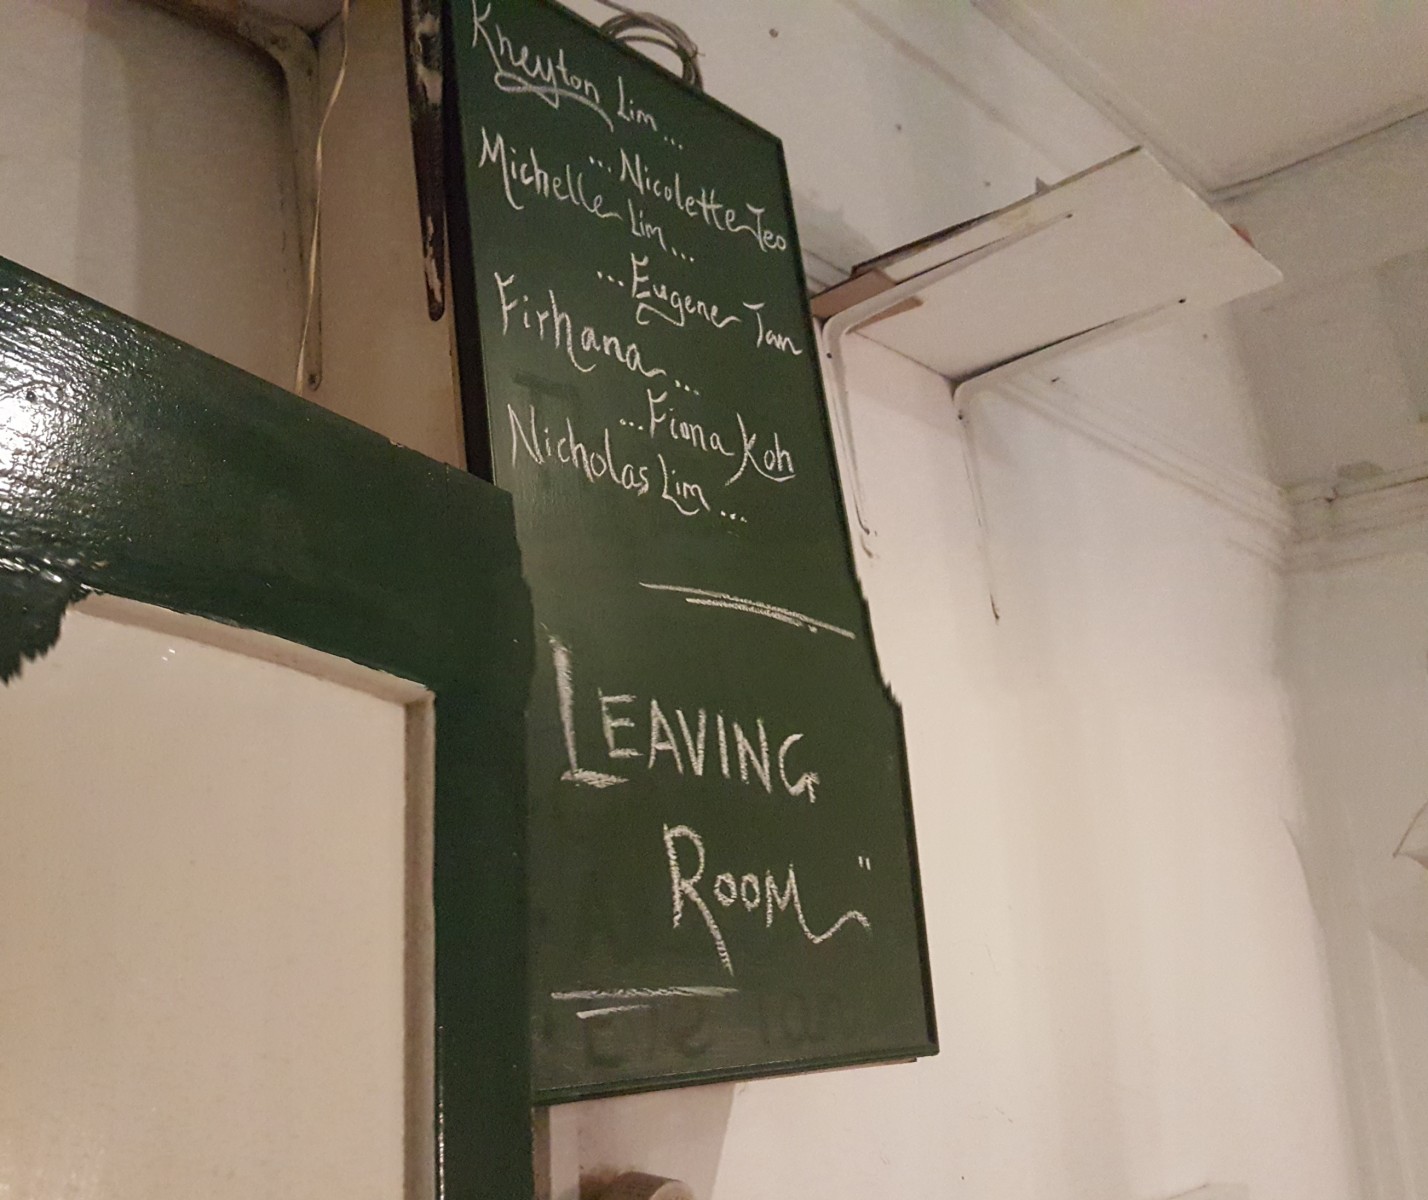 Kheyton Lim...
...Nicolette Teo
Michelle Lim...
...Eugene Tan
Firhana...
...Fiona Koh
Nicholas Lim...
LEAVING
ROOM"